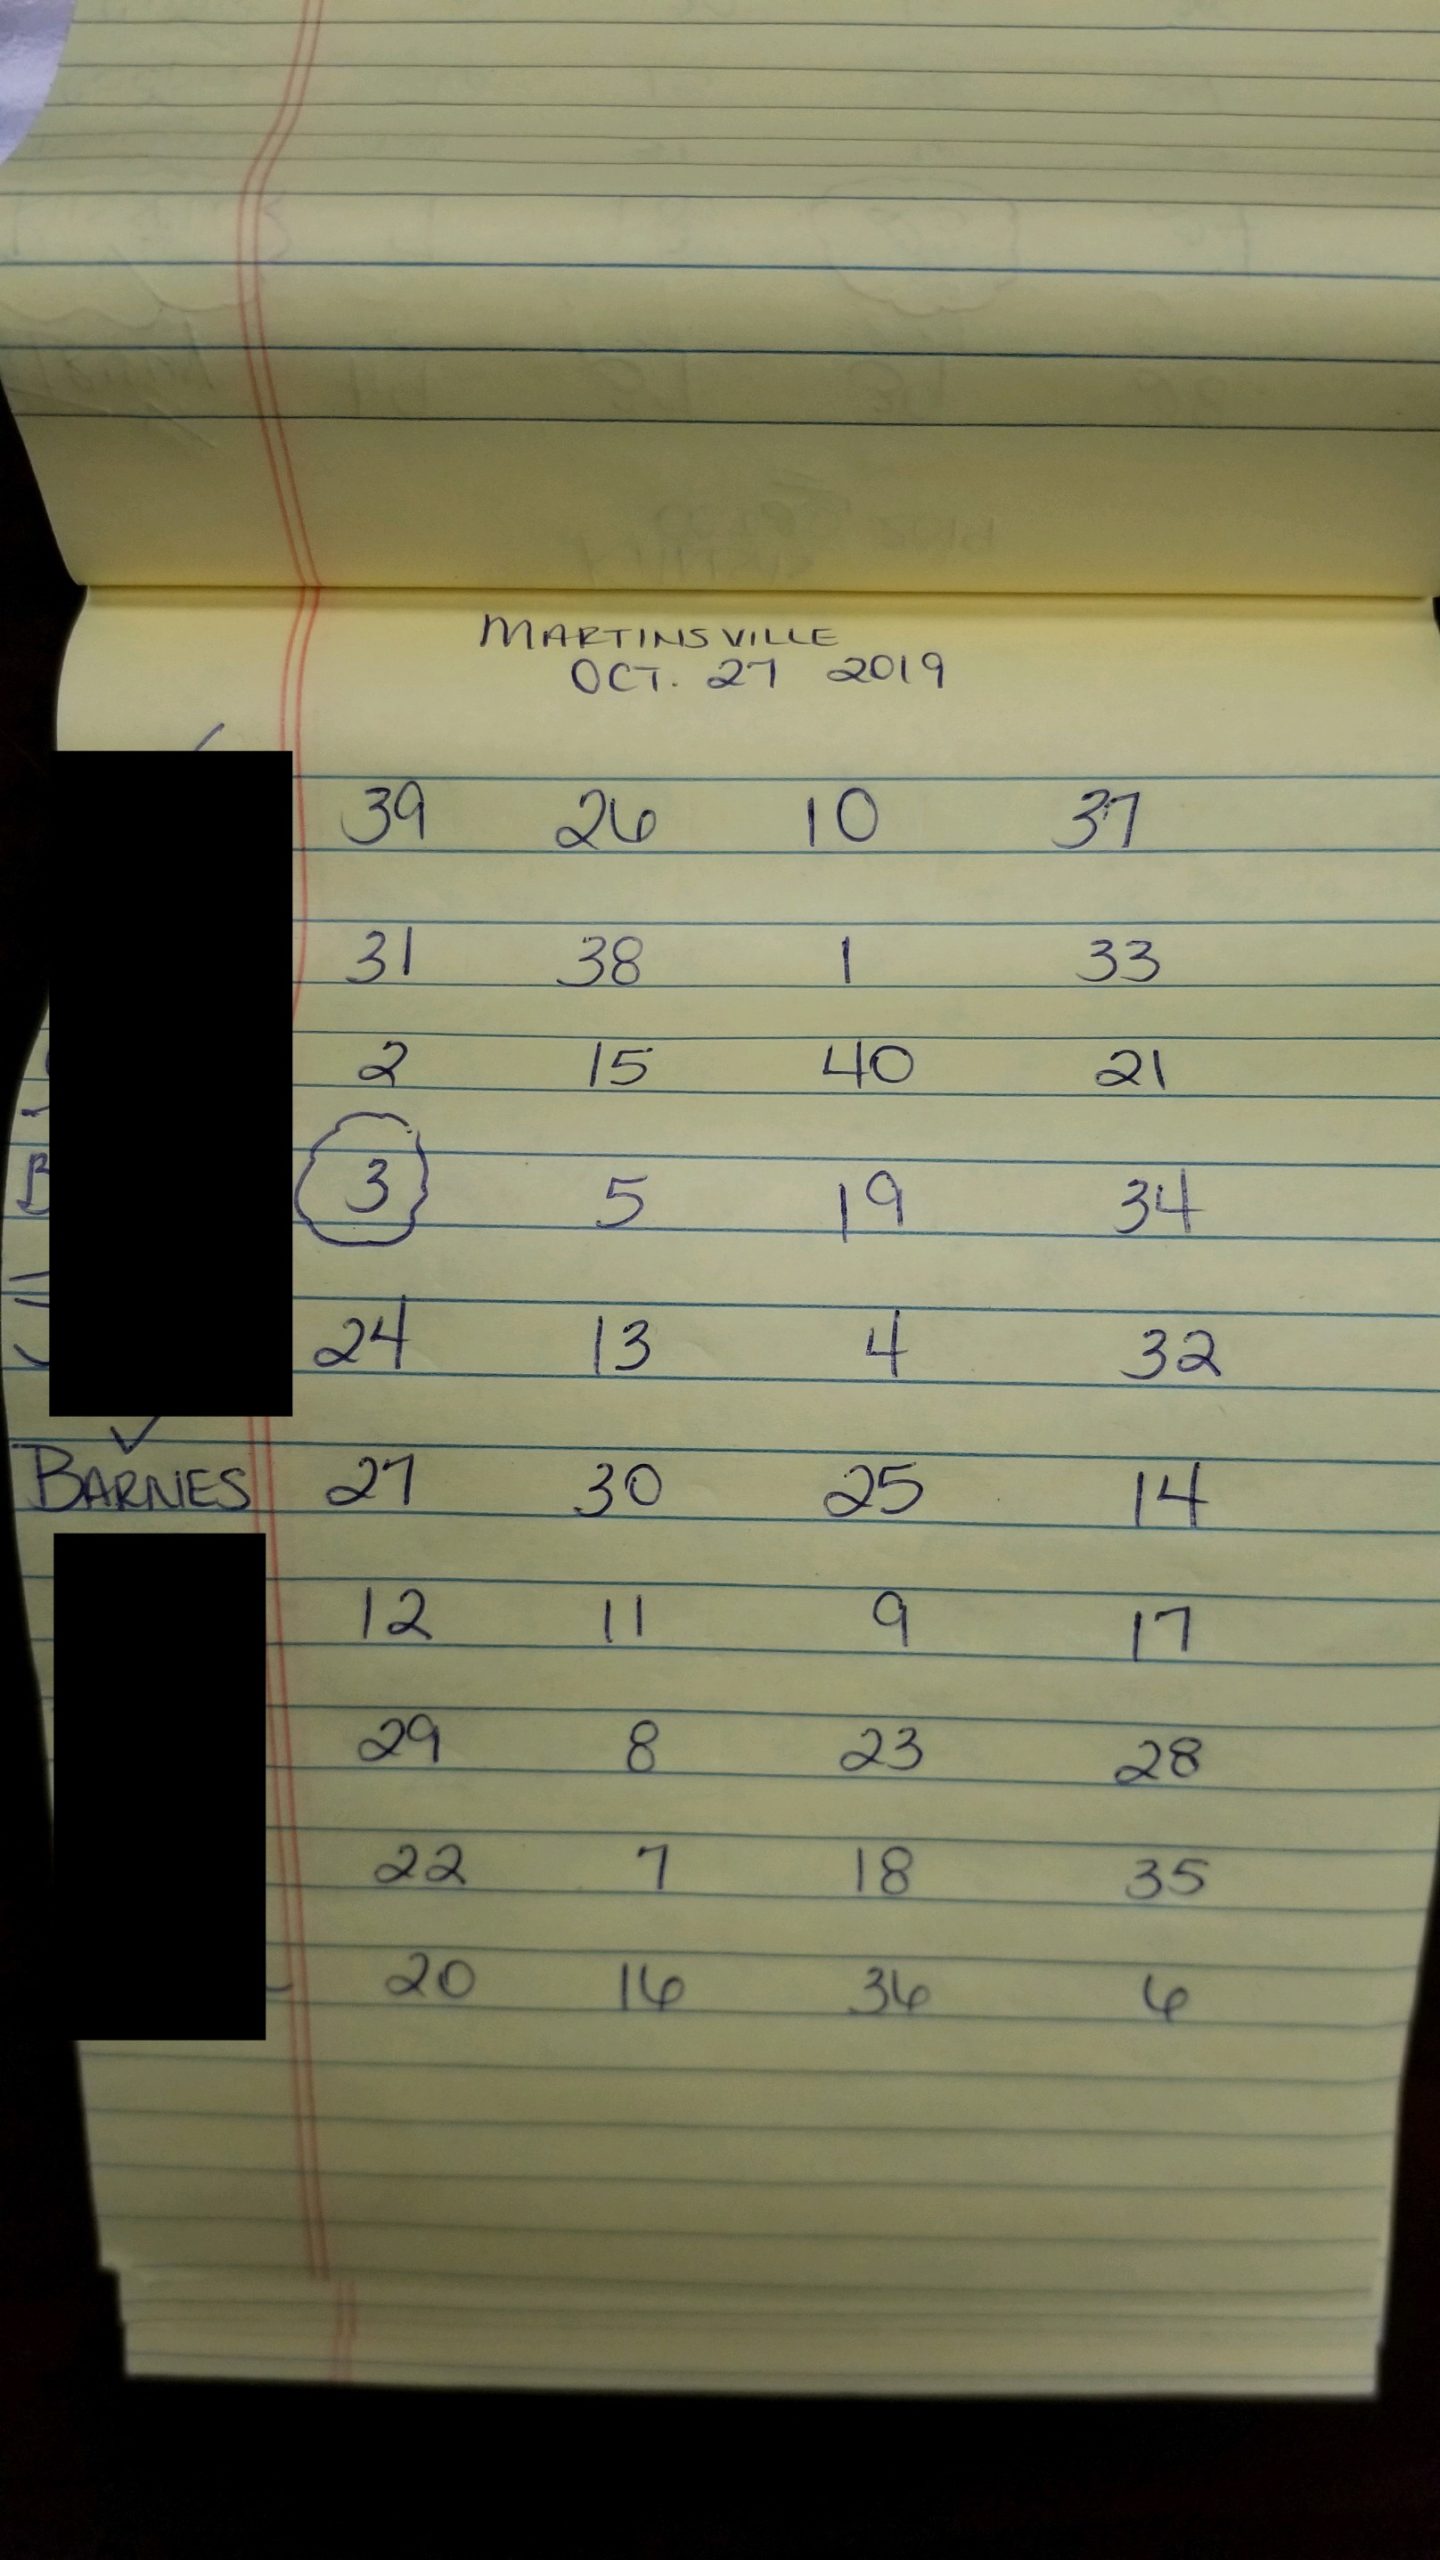 MARTINSVILLE
OCT. 27 2019
39 26 10 37
31 38 1 33
2 15 40 21
B 3 5 19 34
24 13 4 32
BARNES 27 30 25 14
12 11 9 17
29 8 23 28
22 7 18 35
20 16 36 6